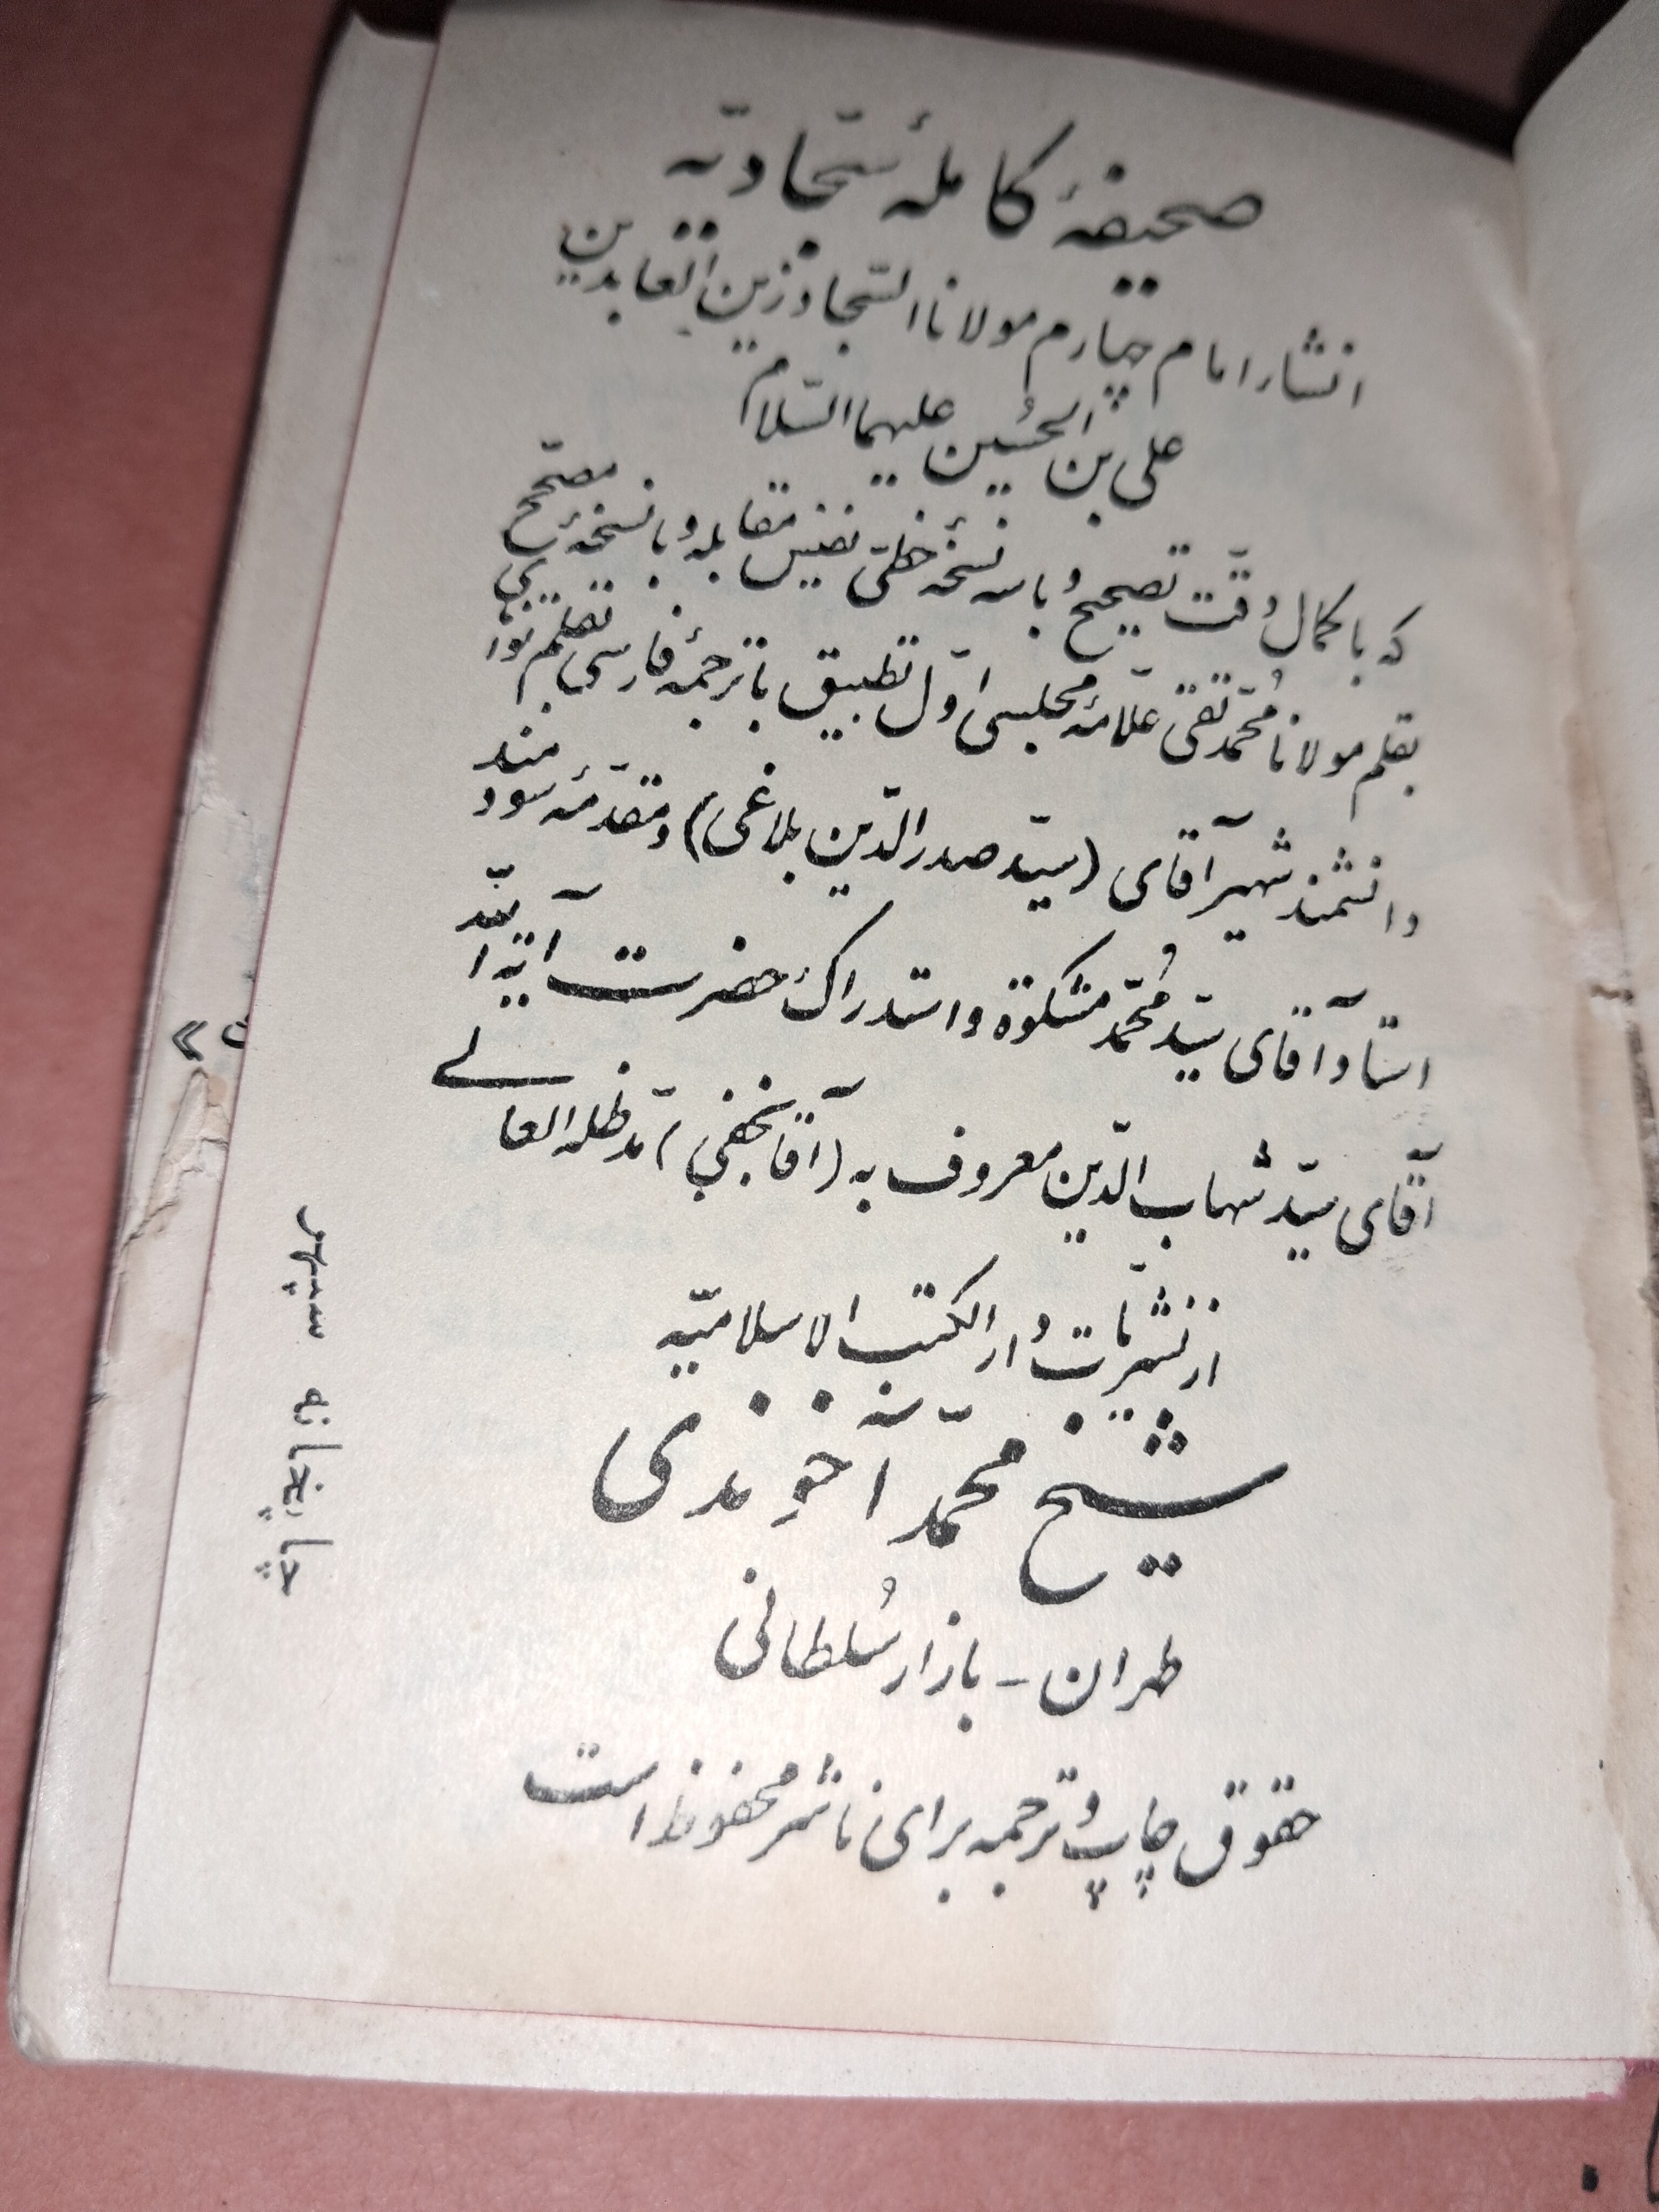 صحیفهٔ کاملهٔ سجّادیّه
انشاء امام چهارم مولانا السّجاد زین العابدین
علی بن الحُسین علیهما السّلام
که با کمال دقّت تصحیح و با سه نسخهٔ خطّی نفیس مقابله و با نسخهٔ مصحّح
بقلم مولانا مُحمّد تقی علّامهٔ مجلسی اوّل تطبیق با ترجمهٔ فارسی بقلم توانای
دانشمند شهیر آقای (سیّد صدرالدّین بلاغی) و مقدّمهٔ سودمند
استاد آقای سیّد مُحمّد مشکوة و استدراک حضرت آیة اللّه
آقای سیّد شهاب الدّین معروف به (آقا نجفی) مدّ ظله العالی
از نشریّات دار الکتب الاسلامیّه
شیخ محمّد آخوندی
طهران - بازار سُلطانی
حقوق چاپ و ترجمه برای ناشر محفوظ است
چاپخانه سپهر